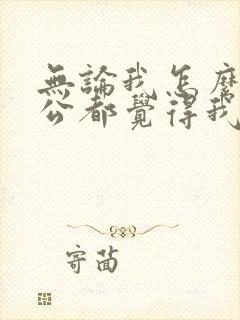 無論我怎麼
公都覺得我
寄茴